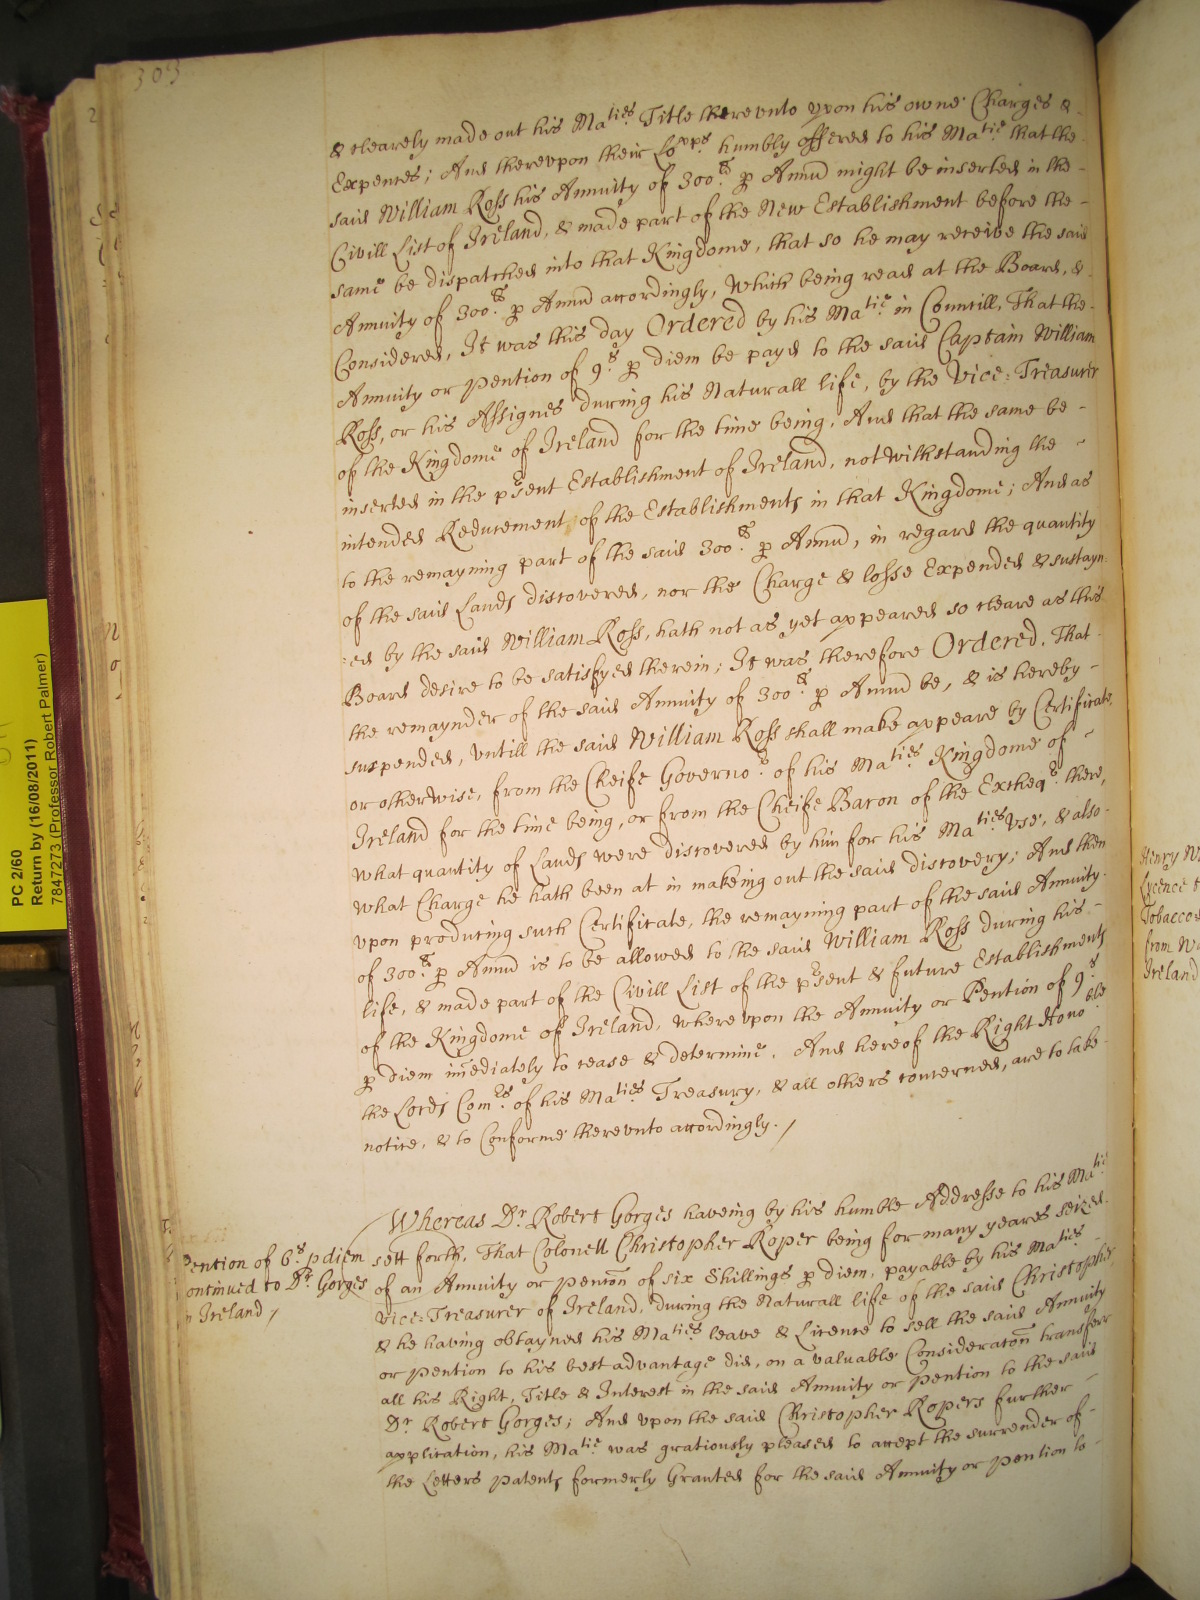 303
& clearely made out his Ma^ties Title therevnto vpon his owne Charges &
Expences; And therevpon their Lo^pps humbly offered to his Ma^tie that the
said William Ross his Annuity of 300^£ p Annũ might be inserted in the
Civill List of Ireland, & made part of the New Establishment before the
same be dispatched into that Kingdome, that so he may receive the said
Annuity of 300^£ p Annũ accordingly, Which being read at the Board, &
Considered, It was this day Ordered by his Ma^tie in Councill, That the
Annuity or Pention of 9^s p diem be payd to the said Captain William
Ross, or his Assignes during his Naturall life, by the Vice-Treasurer
of the Kingdome of Ireland for the time being, And that the same be
inserted in the p^rsent Establishment of Ireland, notwithstanding the
intended Reducement of the Establishments in that Kingdome; And as
to the remayning part of the said 300^£ p Annũ, in regard the quantity
of the said Lands discovered, nor the Charge & losse Expended & sustayn
=ed by the said William Ross, hath not as yet appeared so cleare as this
Board desire to be satisfyed therein; It was therefore Ordered, That
the remaynder of the said Annuity of 300^£ p Annũ be, & is hereby
suspended, vntill the said William Ross shall make appeare by Certificate,
or otherwise, from the Cheife Governo^r of his Ma^ties Kingdome of
Ireland for the time being, or from the Cheife Baron of the Excheq^r there,
what quantity of Lands were discovered by him for his Ma^ties vse, & also
what Charge he hath been at in makeing out the said discovery; And then
vpon producing such Certificate, the remayning part of the said Annuity
of 300^£ p Annũ is to be allowed to the said William Ross during his
life, & made part of the Civill List of the p^rsent & future Establishments
of the Kingdome of Ireland, wherevpon the Annuity or Pention of 9^s
p diem im̃ediately to cease & determine. And hereof the Right Hono^ble
the Lords Com^rs of his Ma^ties Treasury, & all others concerned, are to take
notice, & to Conforme therevnto accordingly. /
Whereas D^r Robert Gorges haveing by his humble Addresse to his Ma^tie
sett forth, That Colonell Christopher Roper being for many yeares seized
of an Annuity or pencõn of six Shillings p diem, payable by his Ma^ties
Vice-Treasurer of Ireland, during the Naturall life of the said Christopher,
& he having obtayned his Ma^ties leave & Licence to sell the said Annuity
or Pention to his best advantage did, on a valuable Consideratoñ transferr
all his Right, Title & Interest in the said Annuity or Pention to the said
D^r Robert Gorges; And vpon the said Christopher Ropers further
application, his Ma^tie was gratiously pleased to accept the surrender of
the Letters Patents formerly Granted for the said Annuity or Pention to
Pention of 6^s p diem
ontinued to D^r Gorges
n Ireland /
PC 2/60
Return by (16/08/2011)
7847273 (Professor Robert Palmer)
Henry
Lycence
Tobacco
from
Ireland